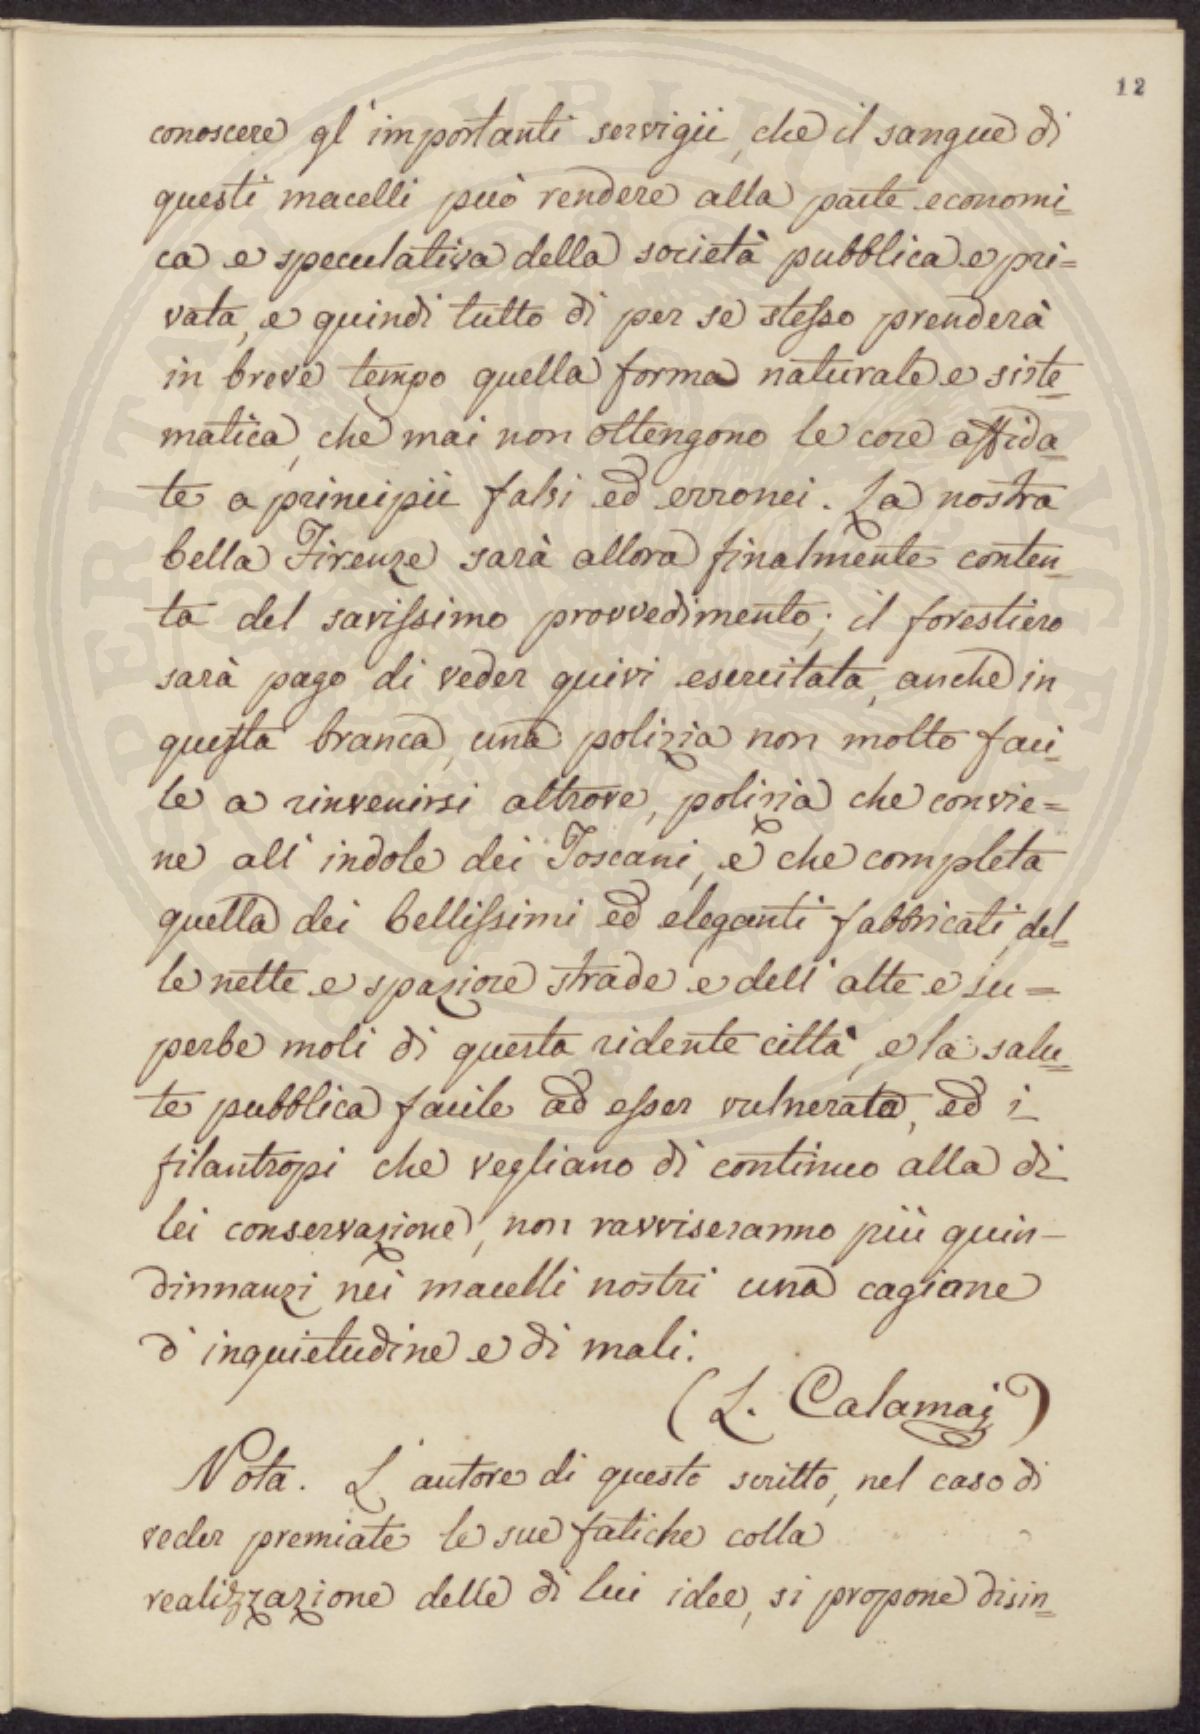 12
conoscere gl'importanti servigii, che il sangue di
questi macelli può rendere alla parte economi=
ca e speculativa della società pubblica e pri=
vata, e quindi tutto di per se stesso prenderà
in breve tempo quella forma naturale e siste=
matica, che mai non ottengono le cose affida=
te a principii falsi ed erronei. La nostra
bella Firenze sarà allora finalmente conten=
ta del savissimo provvedimento; il forestiero
sarà pago di veder quivi esercitata, anche in
questa branca, una polizia non molto faci=
le a rinvenirsi altrove, polizia che convie=
ne all'indole dei Toscani, e che completa
quella dei bellissimi ed eleganti fabbricati, del=
le nette e spaziose strade e dell'alte e su=
perbe moli di questa ridente città, e la salu=
te pubblica facile ad esser vulnerata, ed i
filantropi che vegliano di continuo alla di
lei conservazione, non ravviseranno più quin-
dinnanzi nei macelli nostri una cagione
d'inquietudine e di mali.
(L. Calamai)
Nota. L'autore di questo scritto, nel caso di
veder premiate le sue fatiche colla
realizzazione delle di lui idee, si propone disin=